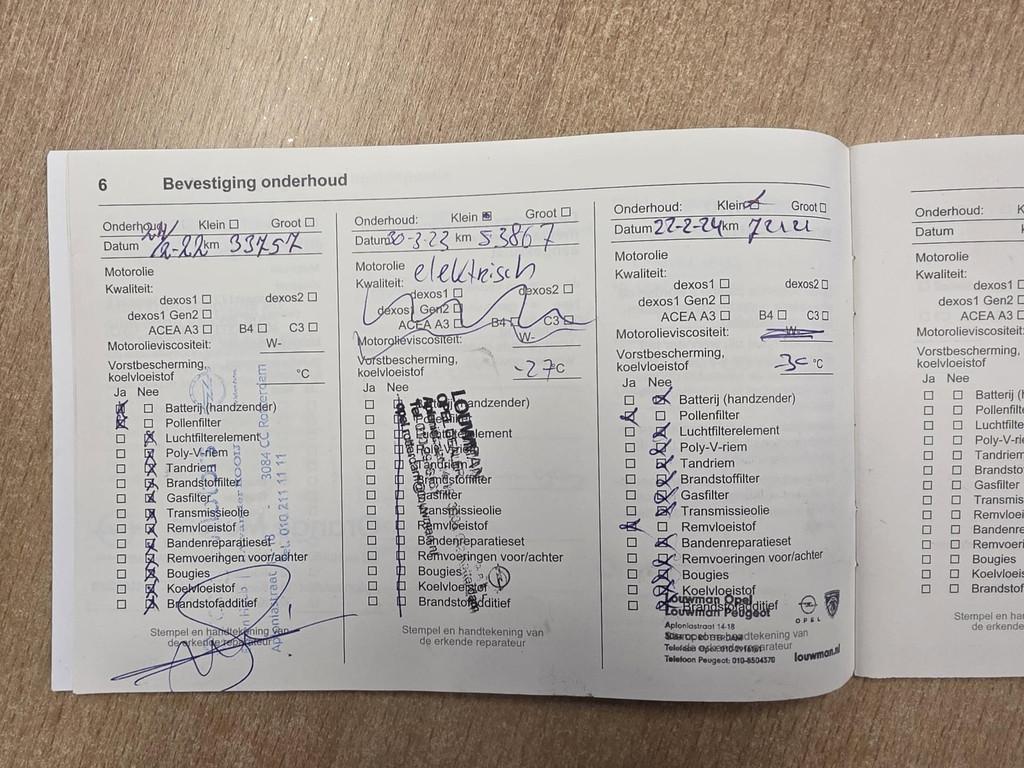 6 Bevestiging onderhoud
Onderhoud: Klein Groot
Datum 22/2-22 km 33757
Motorolie
Kwaliteit:
dexos1 dexos2
dexos1 Gen2
ACEA A3 B4 C3
Motorolieviscositeit: W-
Vorstbescherming,
koelvloeistof °C
Ja Nee
Batterij (handzender)
Pollenfilter
Luchtfilterelement
Poly-V-riem
Tandriem
Brandstoffilter
Gasfilter
Transmissieolie
Remvloeistof
Bandenreparatieset
Remvoeringen voor/achter
Bougies
Koelvloeistof
Brandstofadditief
Stempel en handtekening van
de erkende reparateur
3084 CC Rotterdam
Tel. 010 211 11 11
Onderhoud: Klein Groot
Datum 30-3-23 km 53867
Motorolie elektrisch
Kwaliteit:
dexos1 dexos2
dexos1 Gen2
ACEA A3 B4 C3
Motorolieviscositeit: W-
Vorstbescherming,
koelvloeistof -27°C
Ja Nee
Batterij (handzender)
Luchtfilterelement
Poly-V-riem
Tandriem
Brandstoffilter
Gasfilter
Transmissieolie
Remvloeistof
Bandenreparatieset
Remvoeringen voor/achter
Bougies
Koelvloeistof
Brandstofadditief
Stempel en handtekening van
de erkende reparateur
LOUWMAN
Onderhoud: Klein Groot
Datum 22-2-24 km
Motorolie
Kwaliteit:
dexos1 dexos2
dexos1 Gen2
ACEA A3 B4 C3
Motorolieviscositeit: W-
Vorstbescherming,
koelvloeistof °C
Ja Nee
Batterij (handzender)
Pollenfilter
Luchtfilterelement
Poly-V-riem
Tandriem
Brandstoffilter
Gasfilter
Transmissieolie
Remvloeistof
Bandenreparatieset
Remvoeringen voor/achter
Bougies
Koelvloeistof
Brandstofadditief
Louwman Opel
Louwman Peugeot
Aploniastraat 14-18
handtekening van
Telefoon Peugeot: 010-8504370
OPEL
louwman.nl
Onderhoud: K
Datum
Motorolie
Kwaliteit:
dexos1
dexos1 Gen2
ACEA A3
Motorolieviscositeit
Vorstbescherming,
koelvloeistof
Ja Nee
Batterij (h
Pollenfilte
Luchtfilte
Poly-V-ri
Tandriem
Brandsto
Gasfilter
Transmis
Remvloei
Bandenre
Remvoeri
Bougies
Koelvloeis
Brandstof
Stempel en
de e